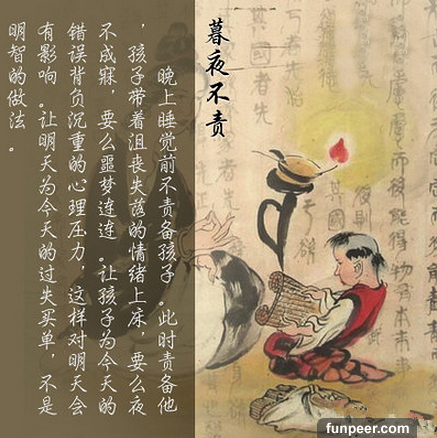 暮夜不责
晚上睡觉前不责备孩子。此时责备他
，孩子带着沮丧失落的情绪上床，要么夜
不成寐，要么噩梦连连。让孩子为今天的
错误背负沉重的心理压力，这样对明天会
有影响。让明天为今天的过失买单，不是
明智的做法。
其國者先
funpeer.com